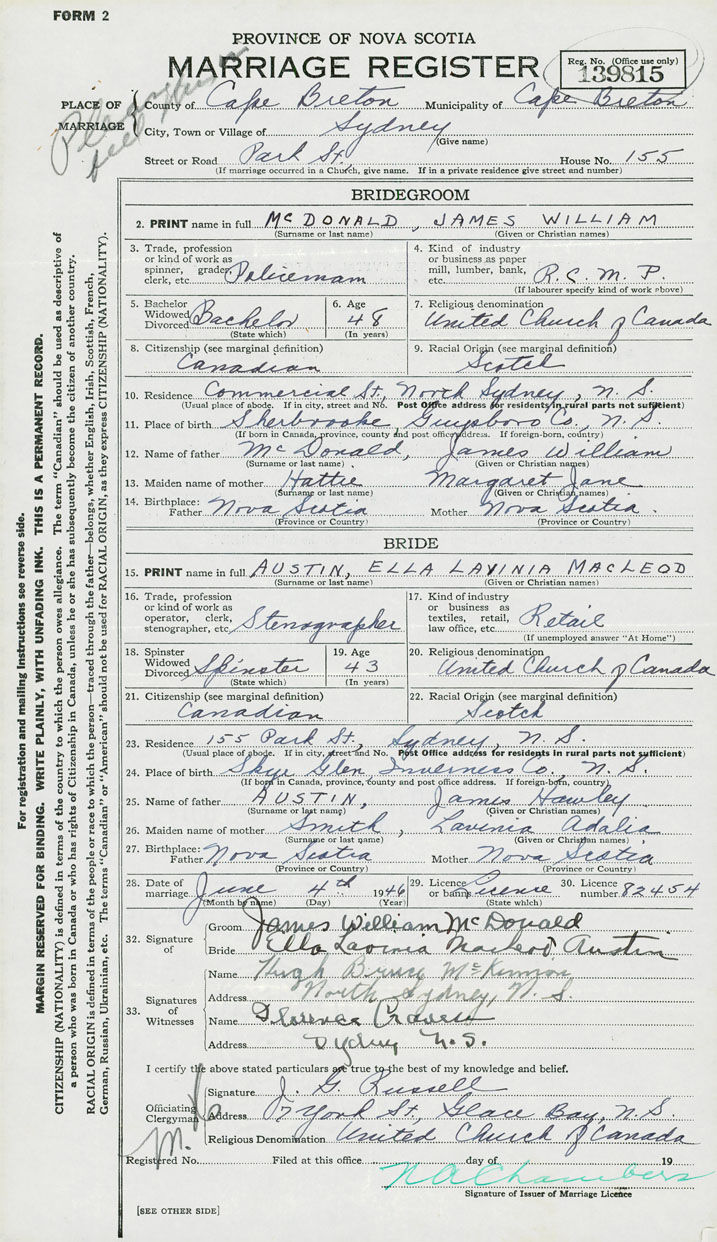 FORM 2
PROVINCE OF NOVA SCOTIA
MARRIAGE REGISTER
Reg. No. (Office use only)
139815
PLACE OF MARRIAGE
County of Cape Breton Municipality of Cape Breton
City, Town or Village of Sydney
(Give name)
Street or Road Park St. House No. 155
(If marriage occurred in a Church, give name. If in a private residence give street and number)
BRIDEGROOM
2. PRINT name in full McDONALD, JAMES WILLIAM
(Surname or last name) (Given or Christian names)
3. Trade, profession or kind of work as spinner, grader, clerk, etc. Policeman
4. Kind of industry or business as paper mill, lumber, bank, etc. R.C.M.P.
(If labourer specify kind of work above)
5. Bachelor Widowed Divorced Bachelor
(State which)
6. Age 48
(In years)
7. Religious denomination
United Church of Canada
8. Citizenship (see marginal definition)
Canadian
9. Racial Origin (see marginal definition)
Scotch
10. Residence Commercial St., North Sydney, N. S.
(Usual place of abode. If in city, street and No. Post Office address for residents in rural parts not sufficient)
11. Place of birth Sherbrooke Guysboro Co., N. S.
(If born in Canada, province, county and post office address. If foreign-born, country)
12. Name of father McDonald, James William
(Surname or last name) (Given or Christian names)
13. Maiden name of mother Hattie Margaret Jane
(Surname or last name) (Given or Christian names)
14. Birthplace: Father Nova Scotia Mother Nova Scotia.
(Province or Country) (Province or Country)
BRIDE
15. PRINT name in full AUSTIN, ELLA LAVINIA MACLEOD
(Surname or last name) (Given or Christian names)
16. Trade, profession or kind of work as operator, clerk, stenographer, etc. Stenographer
17. Kind of industry or business as textiles, retail, law office, etc. Retail
(If unemployed answer "At Home")
18. Spinster Widowed Divorced Spinster
(State which)
19. Age 43
(In years)
20. Religious denomination
United Church of Canada
21. Citizenship (see marginal definition)
Canadian
22. Racial Origin (see marginal definition)
Scotch
23. Residence 155 Park St., Sydney, N. S.
(Usual place of abode. If in city, street and No. Post Office address for residents in rural parts not sufficient)
24. Place of birth Skye Glen, Inverness Co., N. S.
(If born in Canada, province, county and post office address. If foreign-born, country)
25. Name of father AUSTIN, James Hawley
(Surname or last name) (Given or Christian names)
26. Maiden name of mother Smith, Lavinia Adalia
(Surname or last name) (Given or Christian names)
27. Birthplace: Father Nova Scotia Mother Nova Scotia
(Province or Country) (Province or Country)
28. Date of marriage June 4th 1946
(Month by name) (Day) (Year)
29. Licence or banns License
(State which)
30. Licence number 82454
32. Signature of
Groom James William McDonald
Bride Ella Lavinia Macleod Austin
33. Signatures of Witnesses
Name Hugh Bruce McKinnon
Address North Sydney, N. S.
Name Florence
Address Sydney N.S.
I certify the above stated particulars are true to the best of my knowledge and belief.
Officiating Clergyman
Signature J. G. Russell
Address York St., Glace Bay, N.S.
Religious Denomination United Church of Canada
Registered No. Filed at this office day of 19
N A Chambers
Signature of Issuer of Marriage Licence
[SEE OTHER SIDE]
For registration and mailing instructions see reverse side.
MARGIN RESERVED FOR BINDING. WRITE PLAINLY, WITH UNFADING INK. THIS IS A PERMANENT RECORD.
CITIZENSHIP (NATIONALITY) is defined in terms of the country to which the person owes allegiance. The term "Canadian" should be used as descriptive of
a person who was born in Canada or who has rights of Citizenship in Canada, unless he or she has subsequently become the citizen of another country.
RACIAL ORIGIN is defined in terms of the people or race to which the person—traced through the father—belongs, whether English, Irish, Scottish, French,
German, Russian, Ukrainian, etc. The terms "Canadian" or "American" should not be used for RACIAL ORIGIN, as they express CITIZENSHIP (NATIONALITY).